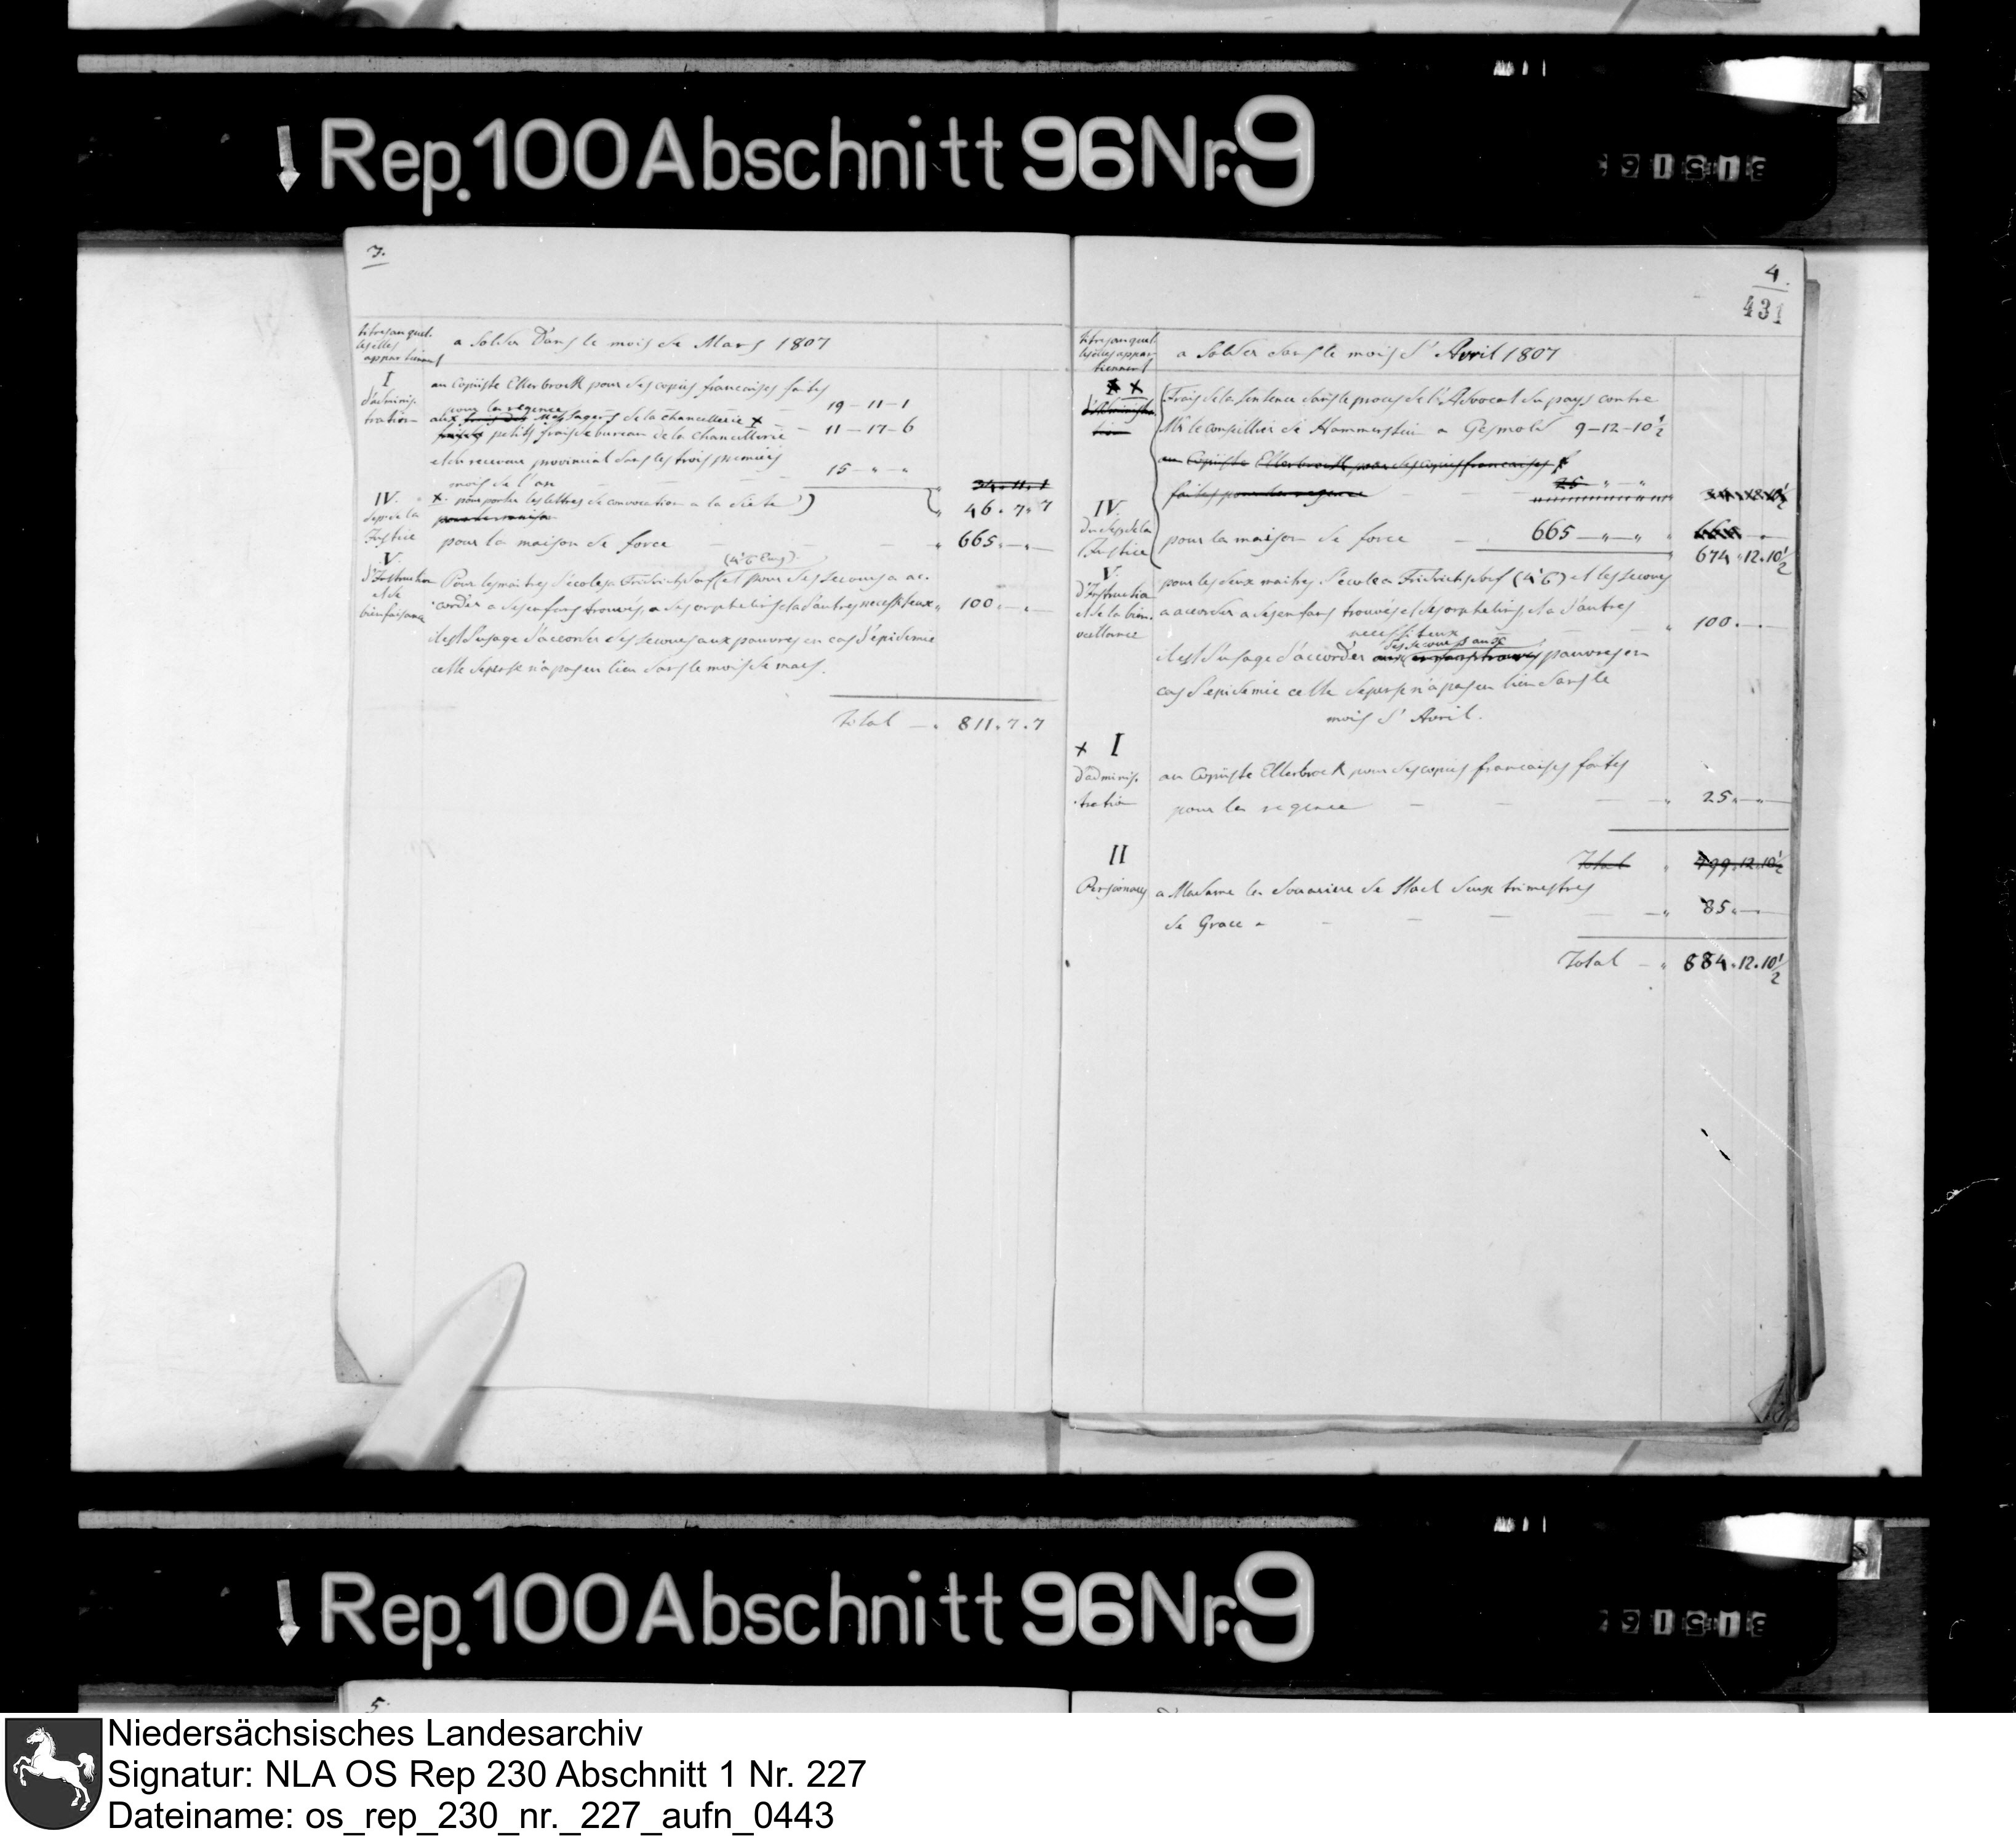 Rep. 100 Abschnitt 96 Nr. 9
3.
titres auquel
les elles
appartiennent
a Solder Dans le mois de Mars 1807
I
d'adminis-
tration
au Copiiste Ellerbrock pour des copies francaises faites
pour la regence 19-11-1
aux Messagers de la Chancellerie x 11-17-6
petits frais de bureau de la Chancellerie
et du receveur provincial dans les trois premiers
mois de l'an 15 - " - "
34.11.1
x. pour porter les lettres de convocation a la diete
46. 7. 7
IV.
dep: de la
Justice
pour la maison de force 665. — " —
V.
d'Instruction
et de
bienfaisance
(4 & 6 Eug)
Pour les maitres d'ecole a Fridrichsdorf et pour des secours a ac-
corder a des enfans trouvés, a des orphelins et a d'autres necessiteux 100. — " —
il est d'usage d'accorder des secours aux pauvres en cas d'epidemie
cette depense n'a pas eu lieu dans le mois de mars.
Total — 811. 7. 7
4.
431
titres auquel
les elles appar-
tiennent
a Solder dans le mois d'Avril 1807
x x
d'Administra
tion
Frais de la Sentence dans le proces de l'Advocat du pays contre
Mr le conseillier de Hammerstein a Gesmold 9-12-10½
au Copiiste Ellerbrock pour des copies francaises
25 " — "
faites pour la regence
IV.
Du dep de la
Justice
pour la maison de force — 665 — " — "
674. 12. 10½
V.
d'Instruction
et de la bien-
veillance
pour les deux maitres d'ecole a Fridrichsdorf (4 & 6) et les secours
a accorder a des enfans trouvés et des orphelins et a d'autres
necessiteux 100. — . —
des secours aux
il est d'usage d'accorder aux enfans trouvés pauvres en
cas d'epidemie cette depense n'a pas eu lieu dans le
mois d'Avril.
x I
d'adminis-
tration
au Copiiste Ellerbrock pour des copies francaises faites
pour la regence 25. — " —
Total 799. 12. 10½
II
Pensionaires
a Madame la douariere de Stael deux trimestres
de Grace 85. —
Total 884. 12. 10½
Rep. 100 Abschnitt 96 Nr. 9
5.
Niedersächsisches Landesarchiv
Signatur: NLA OS Rep 230 Abschnitt 1 Nr. 227
Dateiname: os_rep_230_nr._227_aufn_0443